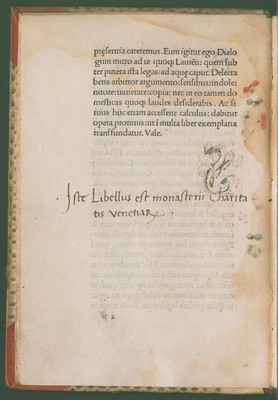 presentia caremus. Eum igitur ego Dialo
gum mitto ad te quoq; Laurēti: quem sub
ter pineta ista legas: ad aquę caput. Delecta
bens arbitror argumento: sensibus: indole:
nitore: uarietate: copia: nec in eo tamen do
mesticas quoq; laudes desiderabis. Ac si
tuus huc etiam accesserit calculus: dabitur
opera protinus: ut ī multa liber exemplaria
transfundatur. Vale.
Iste Libellus est monasterii Charita
tis Venetiar